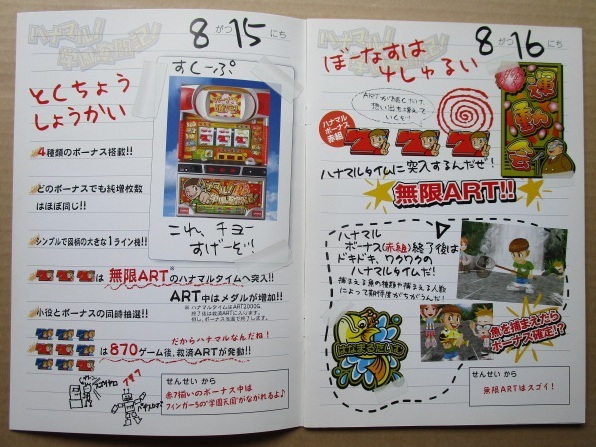 8がつ15にち
とくちょう
しょうかい
すくーぷ
これ、チョー
すげーぞ!
4種類のボーナス搭載!!
どのボーナスでも純増枚数
はほぼ同じ!!
シンプルで図柄の大きな1ライン機!!
777は無限ART®のハナマルタイムへ突入!!
ART中はメダルが増加!!
※ハナマルタイムはART2000G。
終了後は救済ARTに入ります。
但し、ボーナス当選で終了します。
小役とボーナスの同時抽選!!
だからハナマルなんだね!
は870ゲーム後、救済ARTが発動!!
せんせい から
赤7揃いのボーナス中は
フィンガー5の"学園天国"がながれるよ♪
8がつ16にち
ぼーなすは
4しゅるい
ARTが続くだけ、
想い出も増えて
いくぞ
ハナマル
ボーナス
赤組
777
運動会
ハナマルタイムに突入するんだぜ!
無限ART!!
ハナマル
ボーナス(赤組)終了後は
ドキドキ、ワクワクの
ハナマルタイムだ!
捕まえる魚の種類や捕まえる人数
によって期待度がちがうんだ!
魚を捕まえたら
ボーナス確定!?
はなまるたいむ
せんせい から
無限ARTはスゴイ!